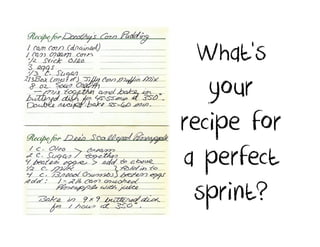 Recipe for Dorothy's Corn Pudding
1 can corn (drained)
1 can cream corn
1/2 stick oleo
3 eggs
1/3 c. sugar
Jiffy Corn Muffin Mix
8 oz. Sour Cream
Mix together and bake in
buttered dish for 45-55 min at 350°.
Double recipe bake 55-60 min.
Recipe for Dee's Scalloped Pineapple
1 c. Oleo > cream
2 c. Sugar / together
4 beaten eggs > add to above
1/2 c. milk
4 c. Bread
Add: 1- can crushed
Pineapple with juice
Bake in 9x9 buttered dish
for 1 hour at 350°.
What's
your
recipe for
a perfect
sprint?